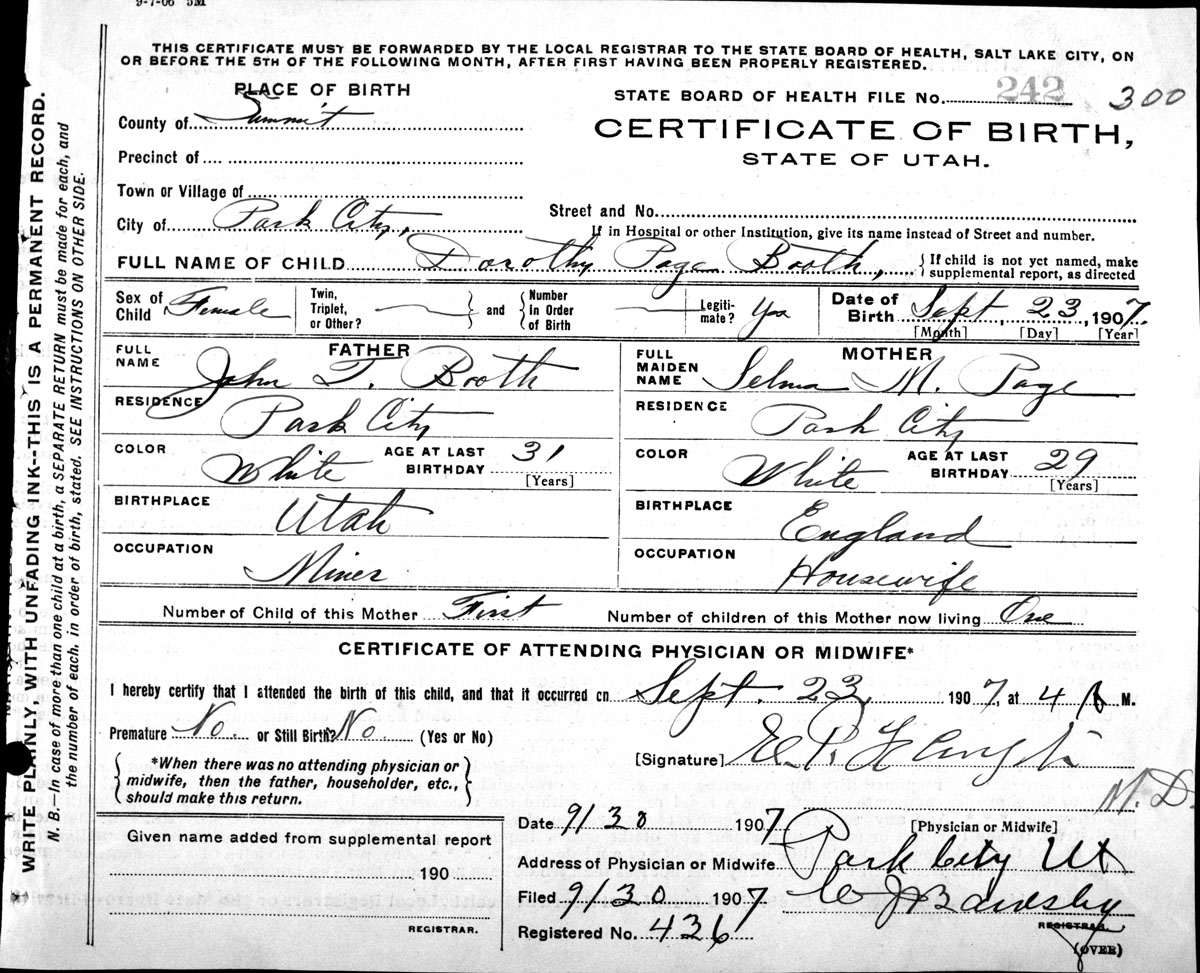 9-7-06 5M
THIS CERTIFICATE MUST BE FORWARDED BY THE LOCAL REGISTRAR TO THE STATE BOARD OF HEALTH, SALT LAKE CITY, ON
OR BEFORE THE 5TH OF THE FOLLOWING MONTH, AFTER FIRST HAVING BEEN PROPERLY REGISTERED.
WRITE PLAINLY, WITH UNFADING INK--THIS IS A PERMANENT RECORD.
N. B.—In case of more than one child at a birth, a SEPARATE RETURN must be made for each, and
the number of each, in order of birth, stated. SEE INSTRUCTIONS ON OTHER SIDE.
PLACE OF BIRTH
STATE BOARD OF HEALTH FILE No. 242 300
County of Summit
CERTIFICATE OF BIRTH,
STATE OF UTAH.
Precinct of
Town or Village of
City of Park City,
Street and No.
If in Hospital or other Institution, give its name instead of Street and number.
FULL NAME OF CHILD Dorothy Page Booth,
{If child is not yet named, make
supplemental report, as directed
Sex of Child Female
Twin, Triplet, or Other? } and { Number in Order of Birth
Legiti-mate? Yes
Date of Birth Sept. 23, 1907.
[Month] [Day] [Year]
FATHER
FULL NAME John T. Booth
RESIDENCE Park City
COLOR White AGE AT LAST BIRTHDAY 31
[Years]
BIRTHPLACE Utah
OCCUPATION Miner
MOTHER
FULL MAIDEN NAME Selma M. Page
RESIDENCE Park City
COLOR White AGE AT LAST BIRTHDAY 29
[Years]
BIRTHPLACE England
OCCUPATION Housewife
Number of Child of this Mother First Number of children of this Mother now living One
CERTIFICATE OF ATTENDING PHYSICIAN OR MIDWIFE*
I hereby certify that I attended the birth of this child, and that it occurred on Sept. 23, 1907, at 4 M.
Premature No. or Still Birth? No. (Yes or No)
[Signature] E. P. M.D.
{*When there was no attending physician or
midwife, then the father, householder, etc.,
should make this return.}
Date 9/30 1907
[Physician or Midwife]
Given name added from supplemental report
190
REGISTRAR.
Address of Physician or Midwife Park City Ut
Filed 9/30 1907
REGISTRAR.
Registered No. 436
(OVER)